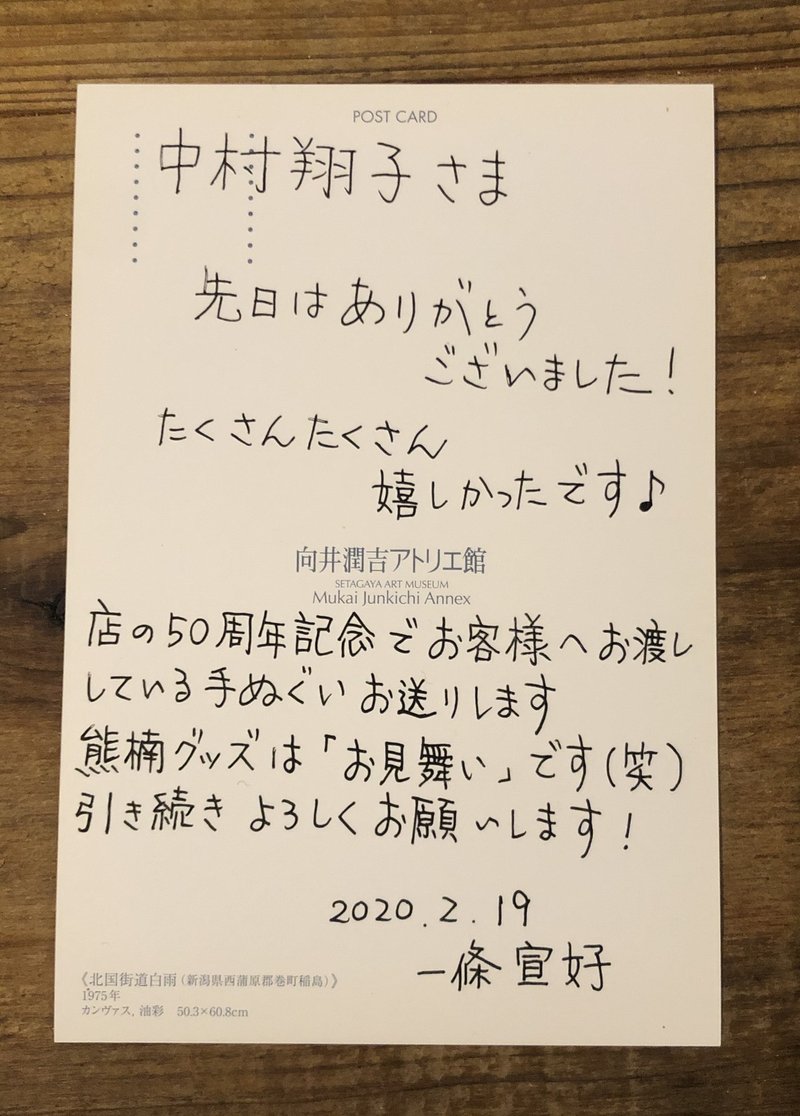 POST CARD
中村翔子さま
先日はありがとう
ございました!
たくさんたくさん
嬉しかったです♪
向井潤吉アトリエ館
SETAGAYA ART MUSEUM
Mukai Junkichi Annex
店の50周年記念でお客様へお渡し
している手ぬぐいお送りします
熊楠グッズは「お見舞い」です(笑)
引き続きよろしくお願いします!
2020.2.19
一條宣好
《北国街道白雨(新潟県西蒲原郡巻町稲島)》
1975年
カンヴァス, 油彩 50.3×60.8cm